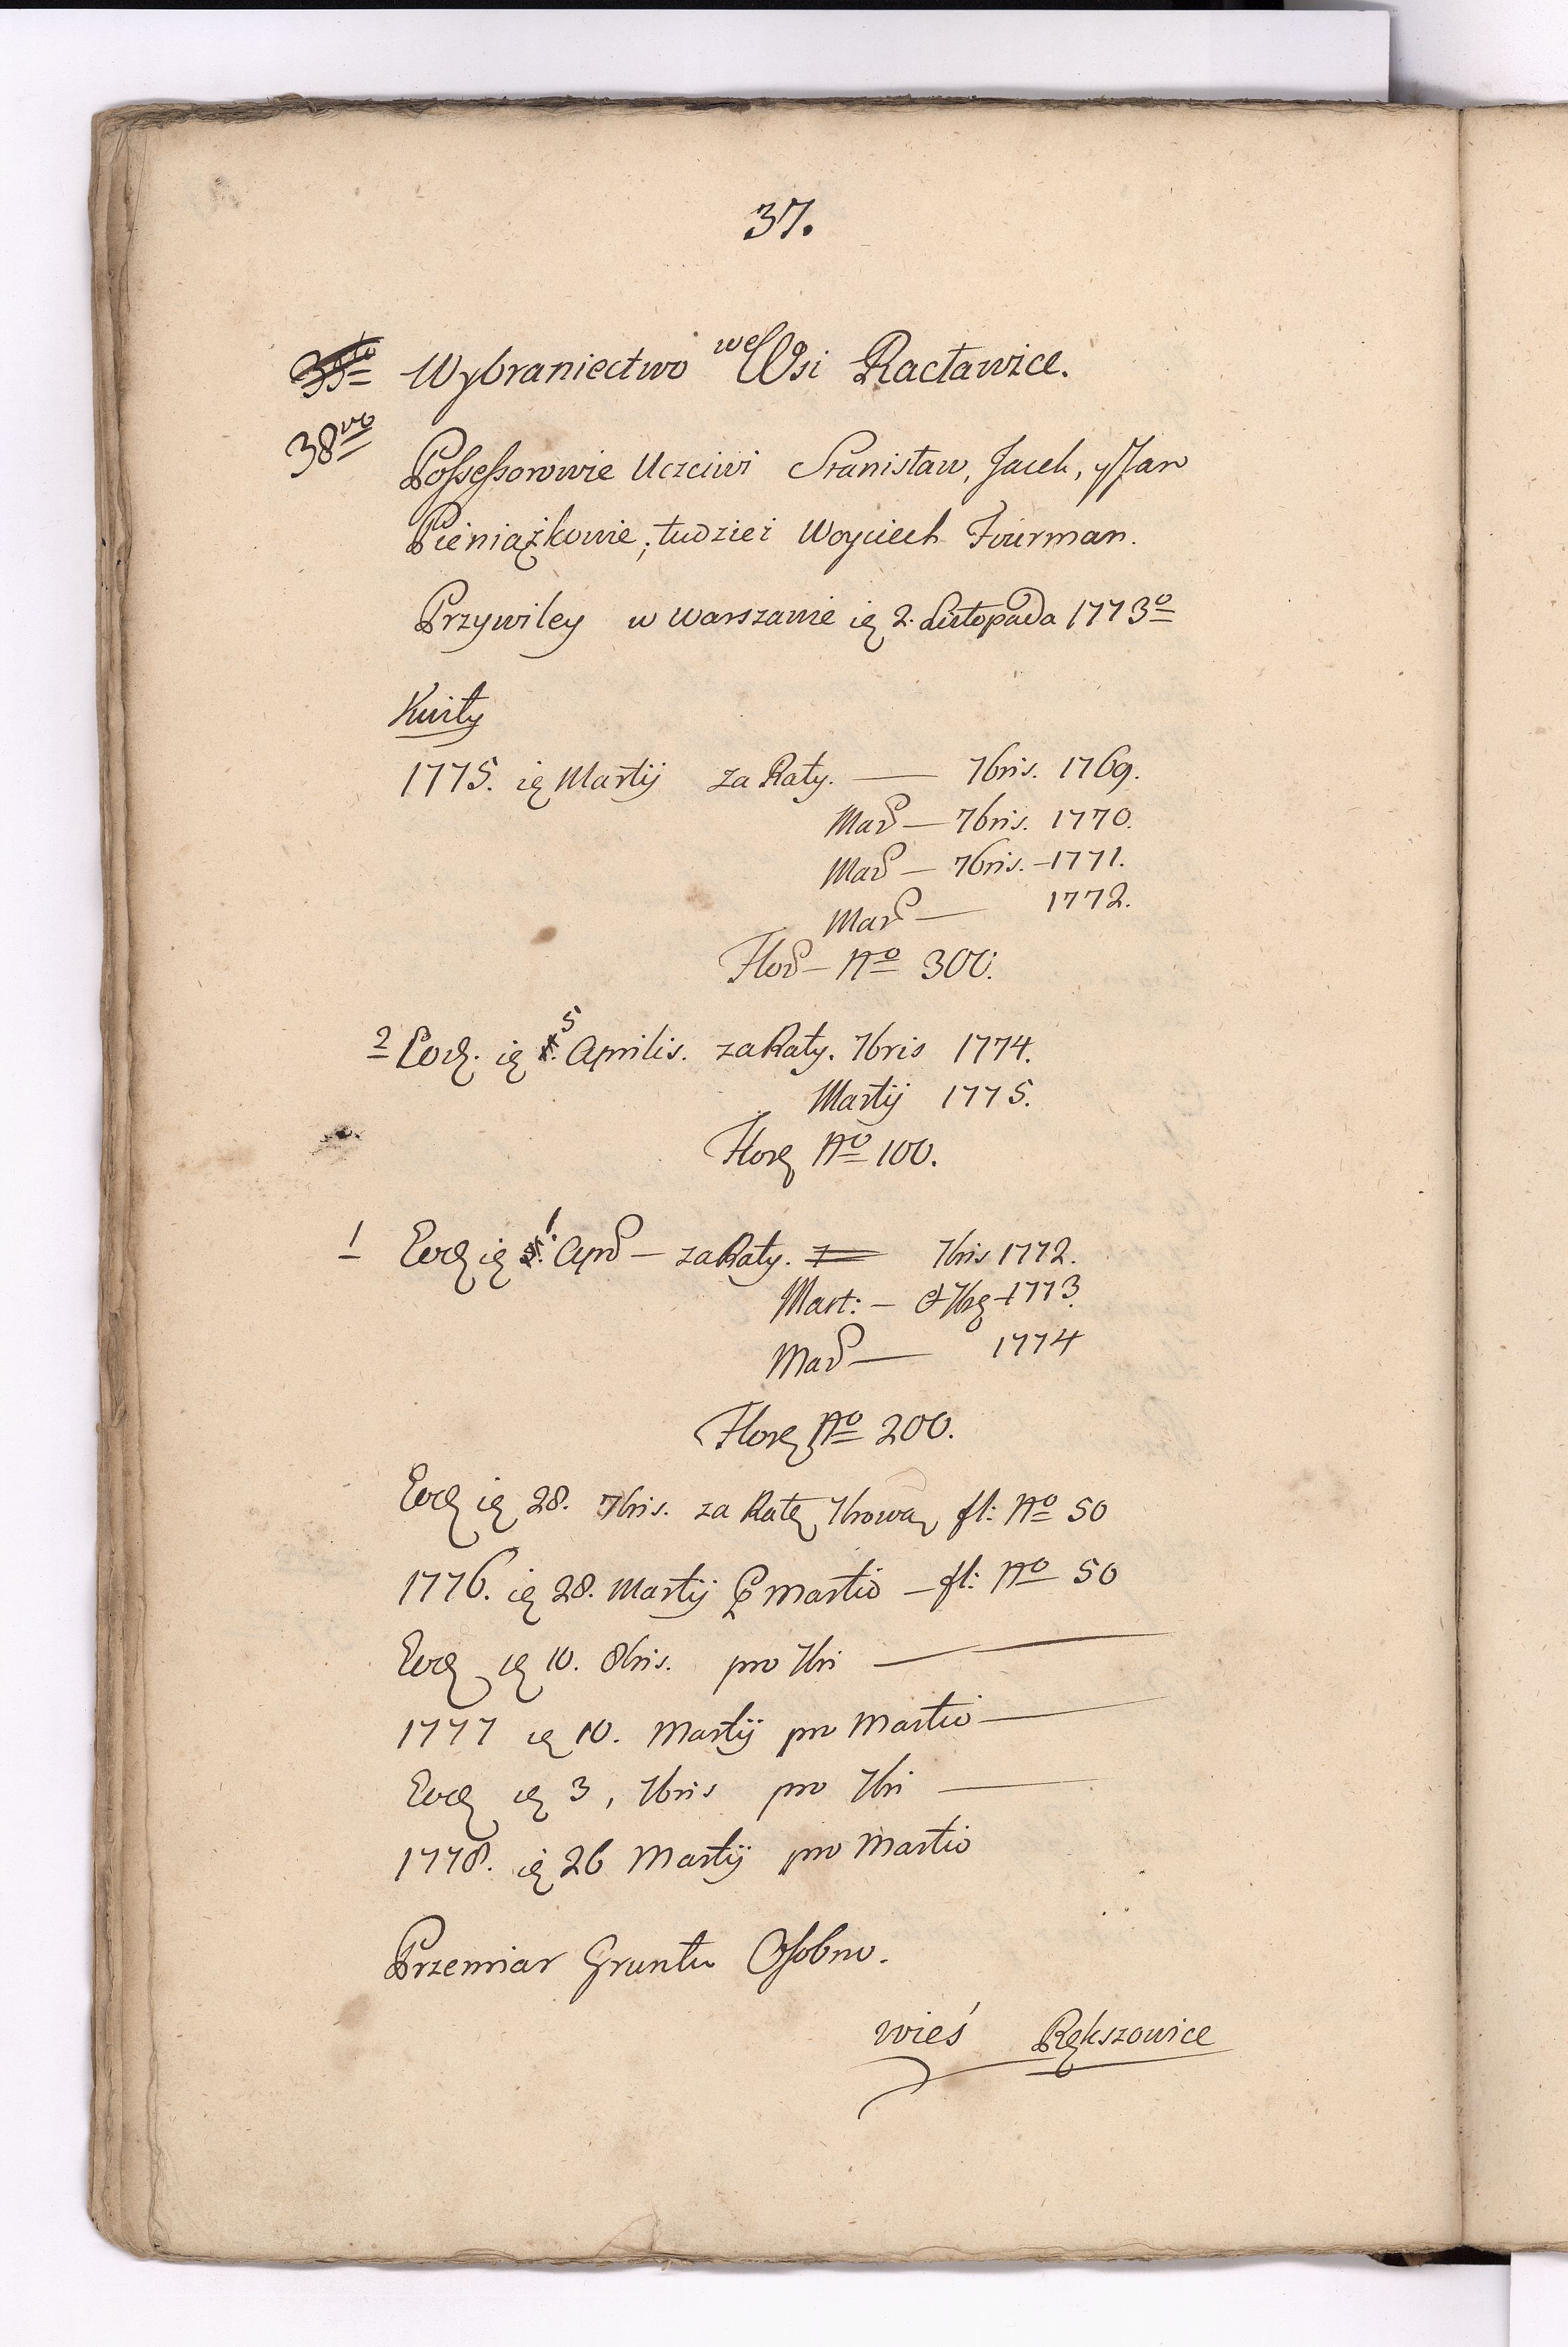 37.
Wybraniectwo we Wsi Racławice.
38vo
Possessorowie Uczciwi Stanisław, Jacek, y Jan
Pieniążkowie, tudzież Woyciech Furman.
Przywiley w Warszawie ię 2. Listopada 1773o
Kwity
1775. ię Martij za Raty. — 7bris. 1769.
Mar — 7bris. 1770.
Mar — 7bris. — 1771.
Mar — 1772.
Flor — No 300.
2 Eod. ię 5 Aprilis. za Raty. 7bris 1774.
Martij 1775.
Flor No 100.
1 Eod ię 1. Apr — za Raty. 7bris 1772.
Mart: — et 7br — 1773.
Mar — 1774
Flor No 200.
Eod ię 28. 7bris. za Ratę 7brową fl: No 50
1776. ię 28. Martij p Martio — fl: No 50
Eod ię 10. 8bris. pro 7bri —
1777 ię 10. Martij pro Martio —
Eod ię 3, 7bris pro 7bri —
1778. ię 26 Martij pro Martio
Przemiar Gruntu Osobno.
wieś Rększowice